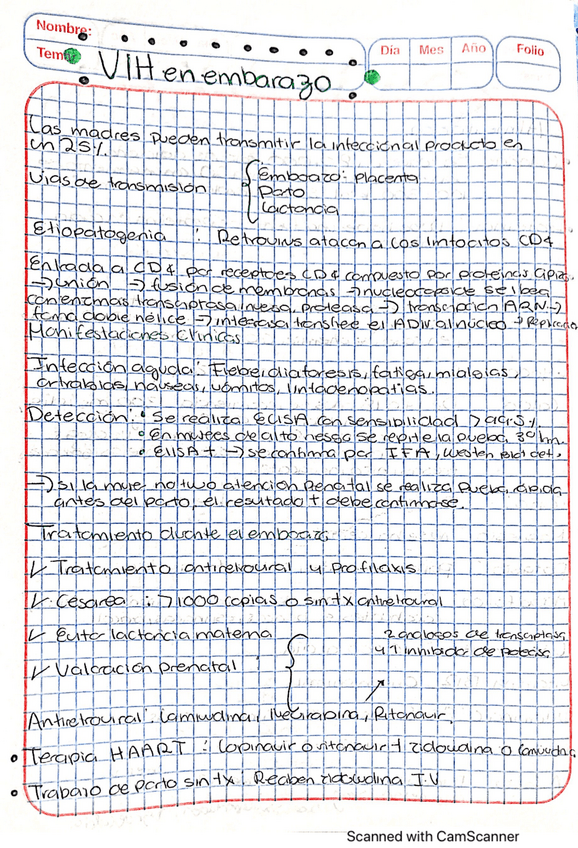 Nombre:
Tema
Día Mes Año Folio
VIH en embarazo
Las madres pueden transmitir la infección al producto en
un 25%.
Vías de transmisión
Embarazo: placenta
Parto
Lactancia
Etiopatogenia : Retrovirus atacan a los linfocitos CD4
Entrada a CD4 por receptores CD4 compuesto por proteínas
→ unión → fusión de membranas → nucleocapside se libera
con enzimas transcriptasa inversa, proteasa → transcripción ARN →
forma doble hélice → integrasa transfiere el ADN al núcleo → Replicación
Manifestaciones clínicas
Infección aguda: Fiebre, diaforesis, fatiga, mialgias,
artralgias, náuseas, vómitos, linfadenopatías.
Detección: • Se realiza ELISA con sensibilidad > 99.5%
• En mujeres de alto riesgo se repite la prueba 3º trim.
• ELISA + → se confirma por IFA, Western blot
→ Si la mujer no tuvo atención prenatal se realiza prueba rápida
antes del parto, el resultado + debe confirmarse.
Tratamiento durante el embarazo
✓ Tratamiento antiretroviral y profilaxis
✓ Cesarea : > 1000 copias o sin tx antiretroviral
✓ Evitar lactancia materna
2 análogos de transcriptasa
y 1 inhibidor de proteasa
✓ Valoración prenatal
Antiretroviral: Lamivudina, Nevirapina, Ritonavir,
• Terapia HAART : Lopinavir o ritonavir + zidovudina o lamivudina
• Trabajo de parto sin tx : Reciben zidovudina I.V
Scanned with CamScanner